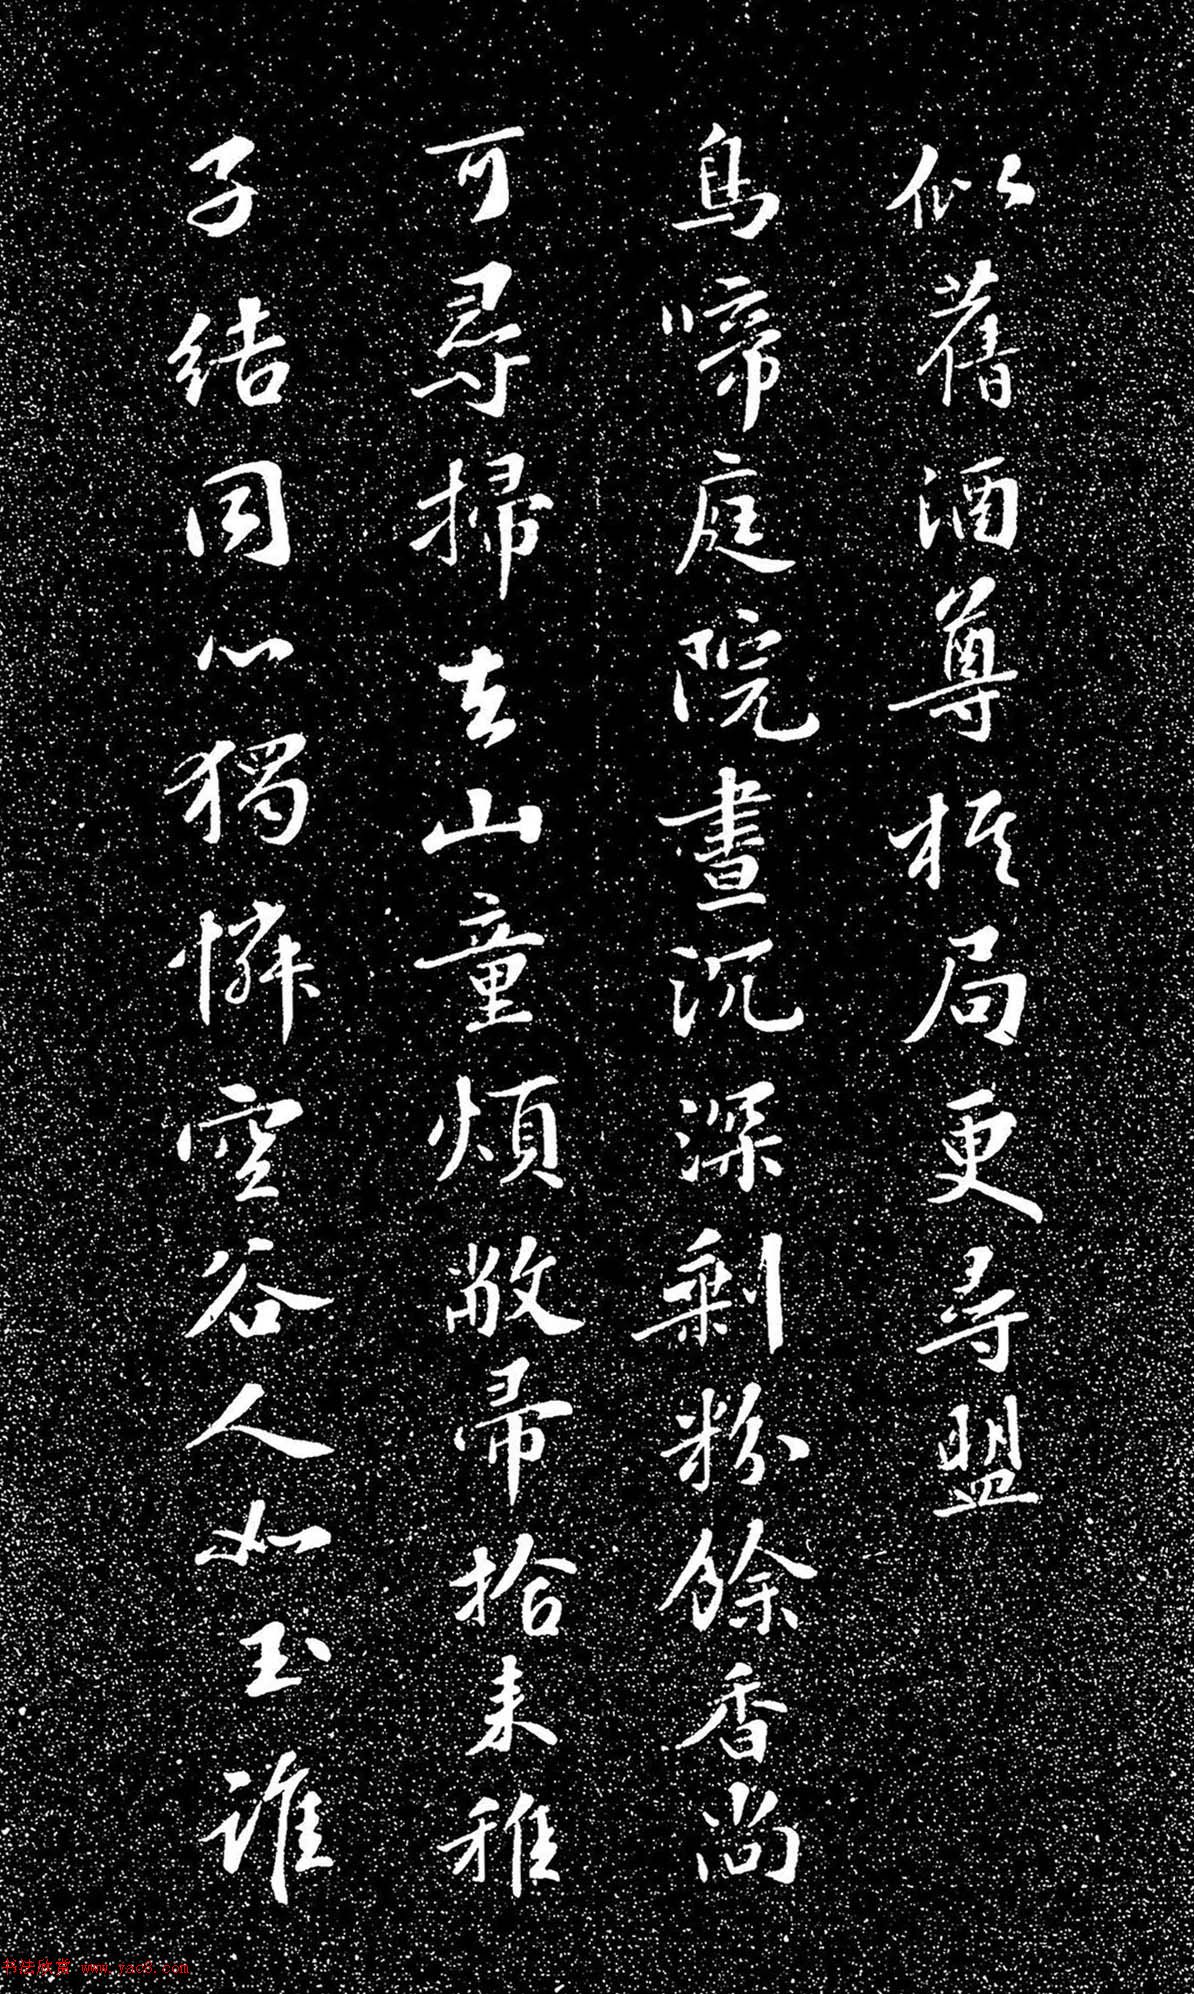 似舊酒尊棋局更尋盟
鳥啼庭院晝沉深剩粉餘香尚
可尋掃去山童煩敝帚拾來稚
子結同心獨憐空谷人如玉誰
书法欣赏 www.yac8.com